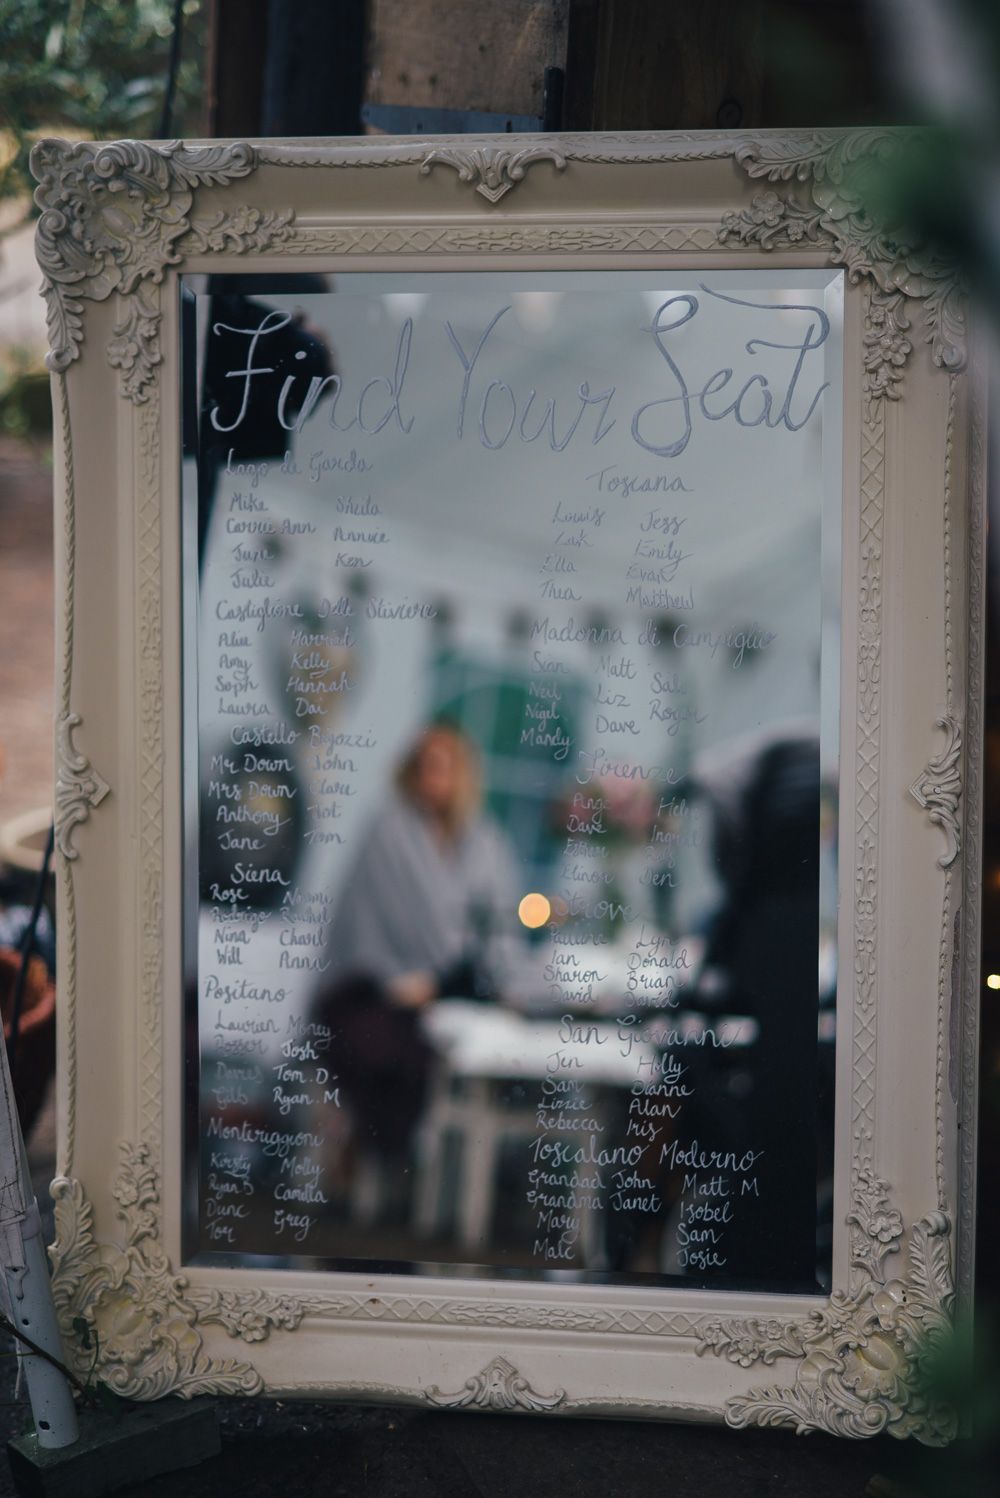 Find Your Seat
Lago de Garda
Mike Sheila
Carrie Ann Annice
June Ken
Julie
Castiglione Delle Stiviere
Alie Harriet
Amy Kelly
Soph Hannah
Laura Dai
Castello
Mr Down John
Mrs Down Clare
Anthony
Jane Tom
Siena
Rose Naomi
Rodrigo Rachel
Nina Charl
Will Anna
Positano
Laurien
Josh
Davies Tom.D.
Ryan.M
Monteriggioni
Kirsty Molly
Ryan B Camilla
Dunc Greg
Tor
Toscana
Louis Jess
Zak Emily
Ella Evan
Thea Matthew
Madonna di Campiglio
Sian Matt
Neil Liz
Nigel Dave Roger
Mandy
Firenze
Ange Helen
Dave Ingrid
Esther
Elinor Den
Strove
Pauline Lyn
Ian Donald
Sharon Brian
David David
San Giovanni
Jen Holly
Sam Dianne
Lizzie Alan
Rebecca Iris
Toscalano Moderno
Grandad John Matt.M
Grandma Janet Isobel
Mary Sam
Malc Josie